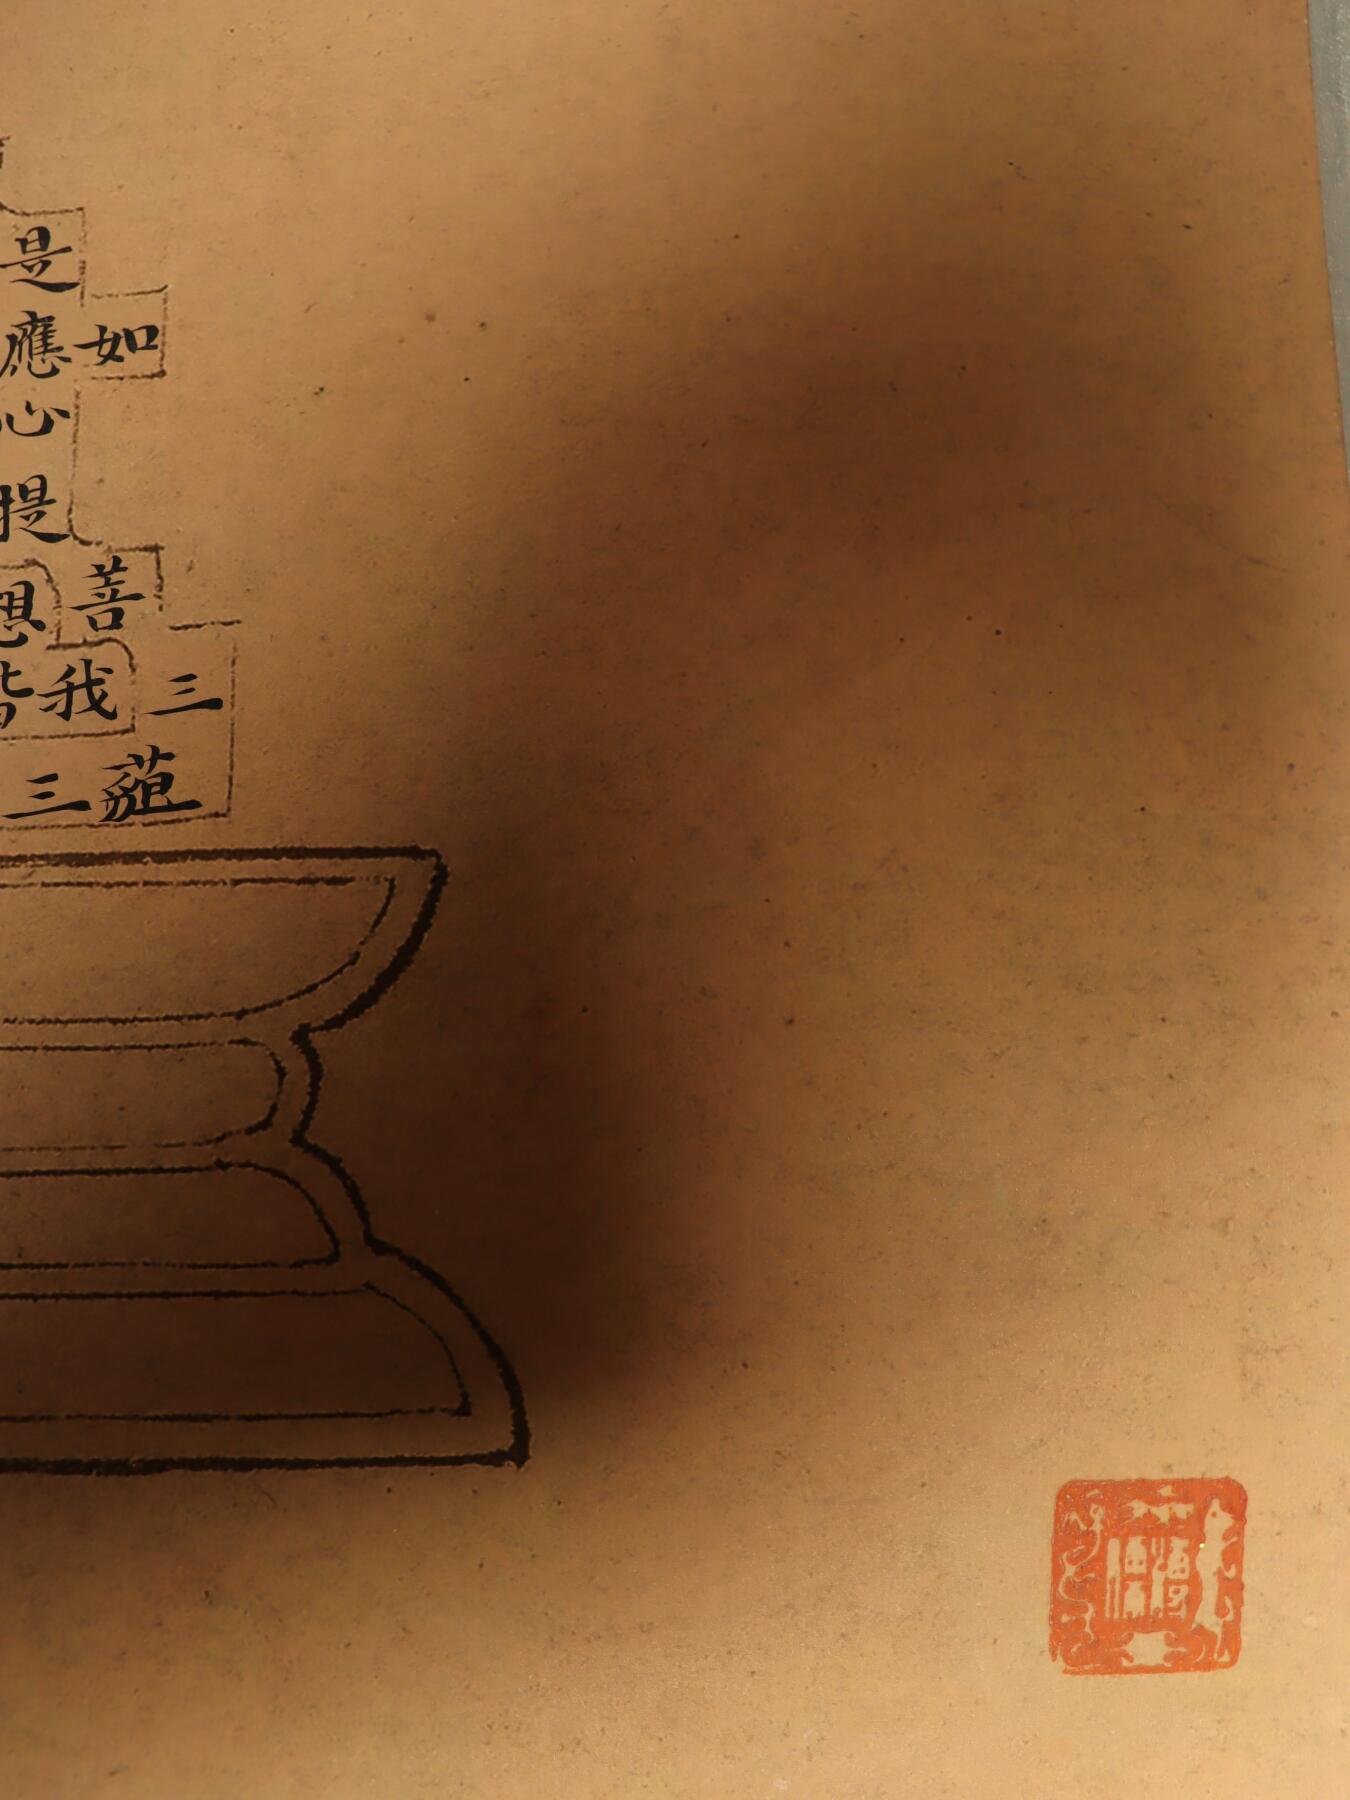 是
如應
心
提
菩想
三我皆
藐三